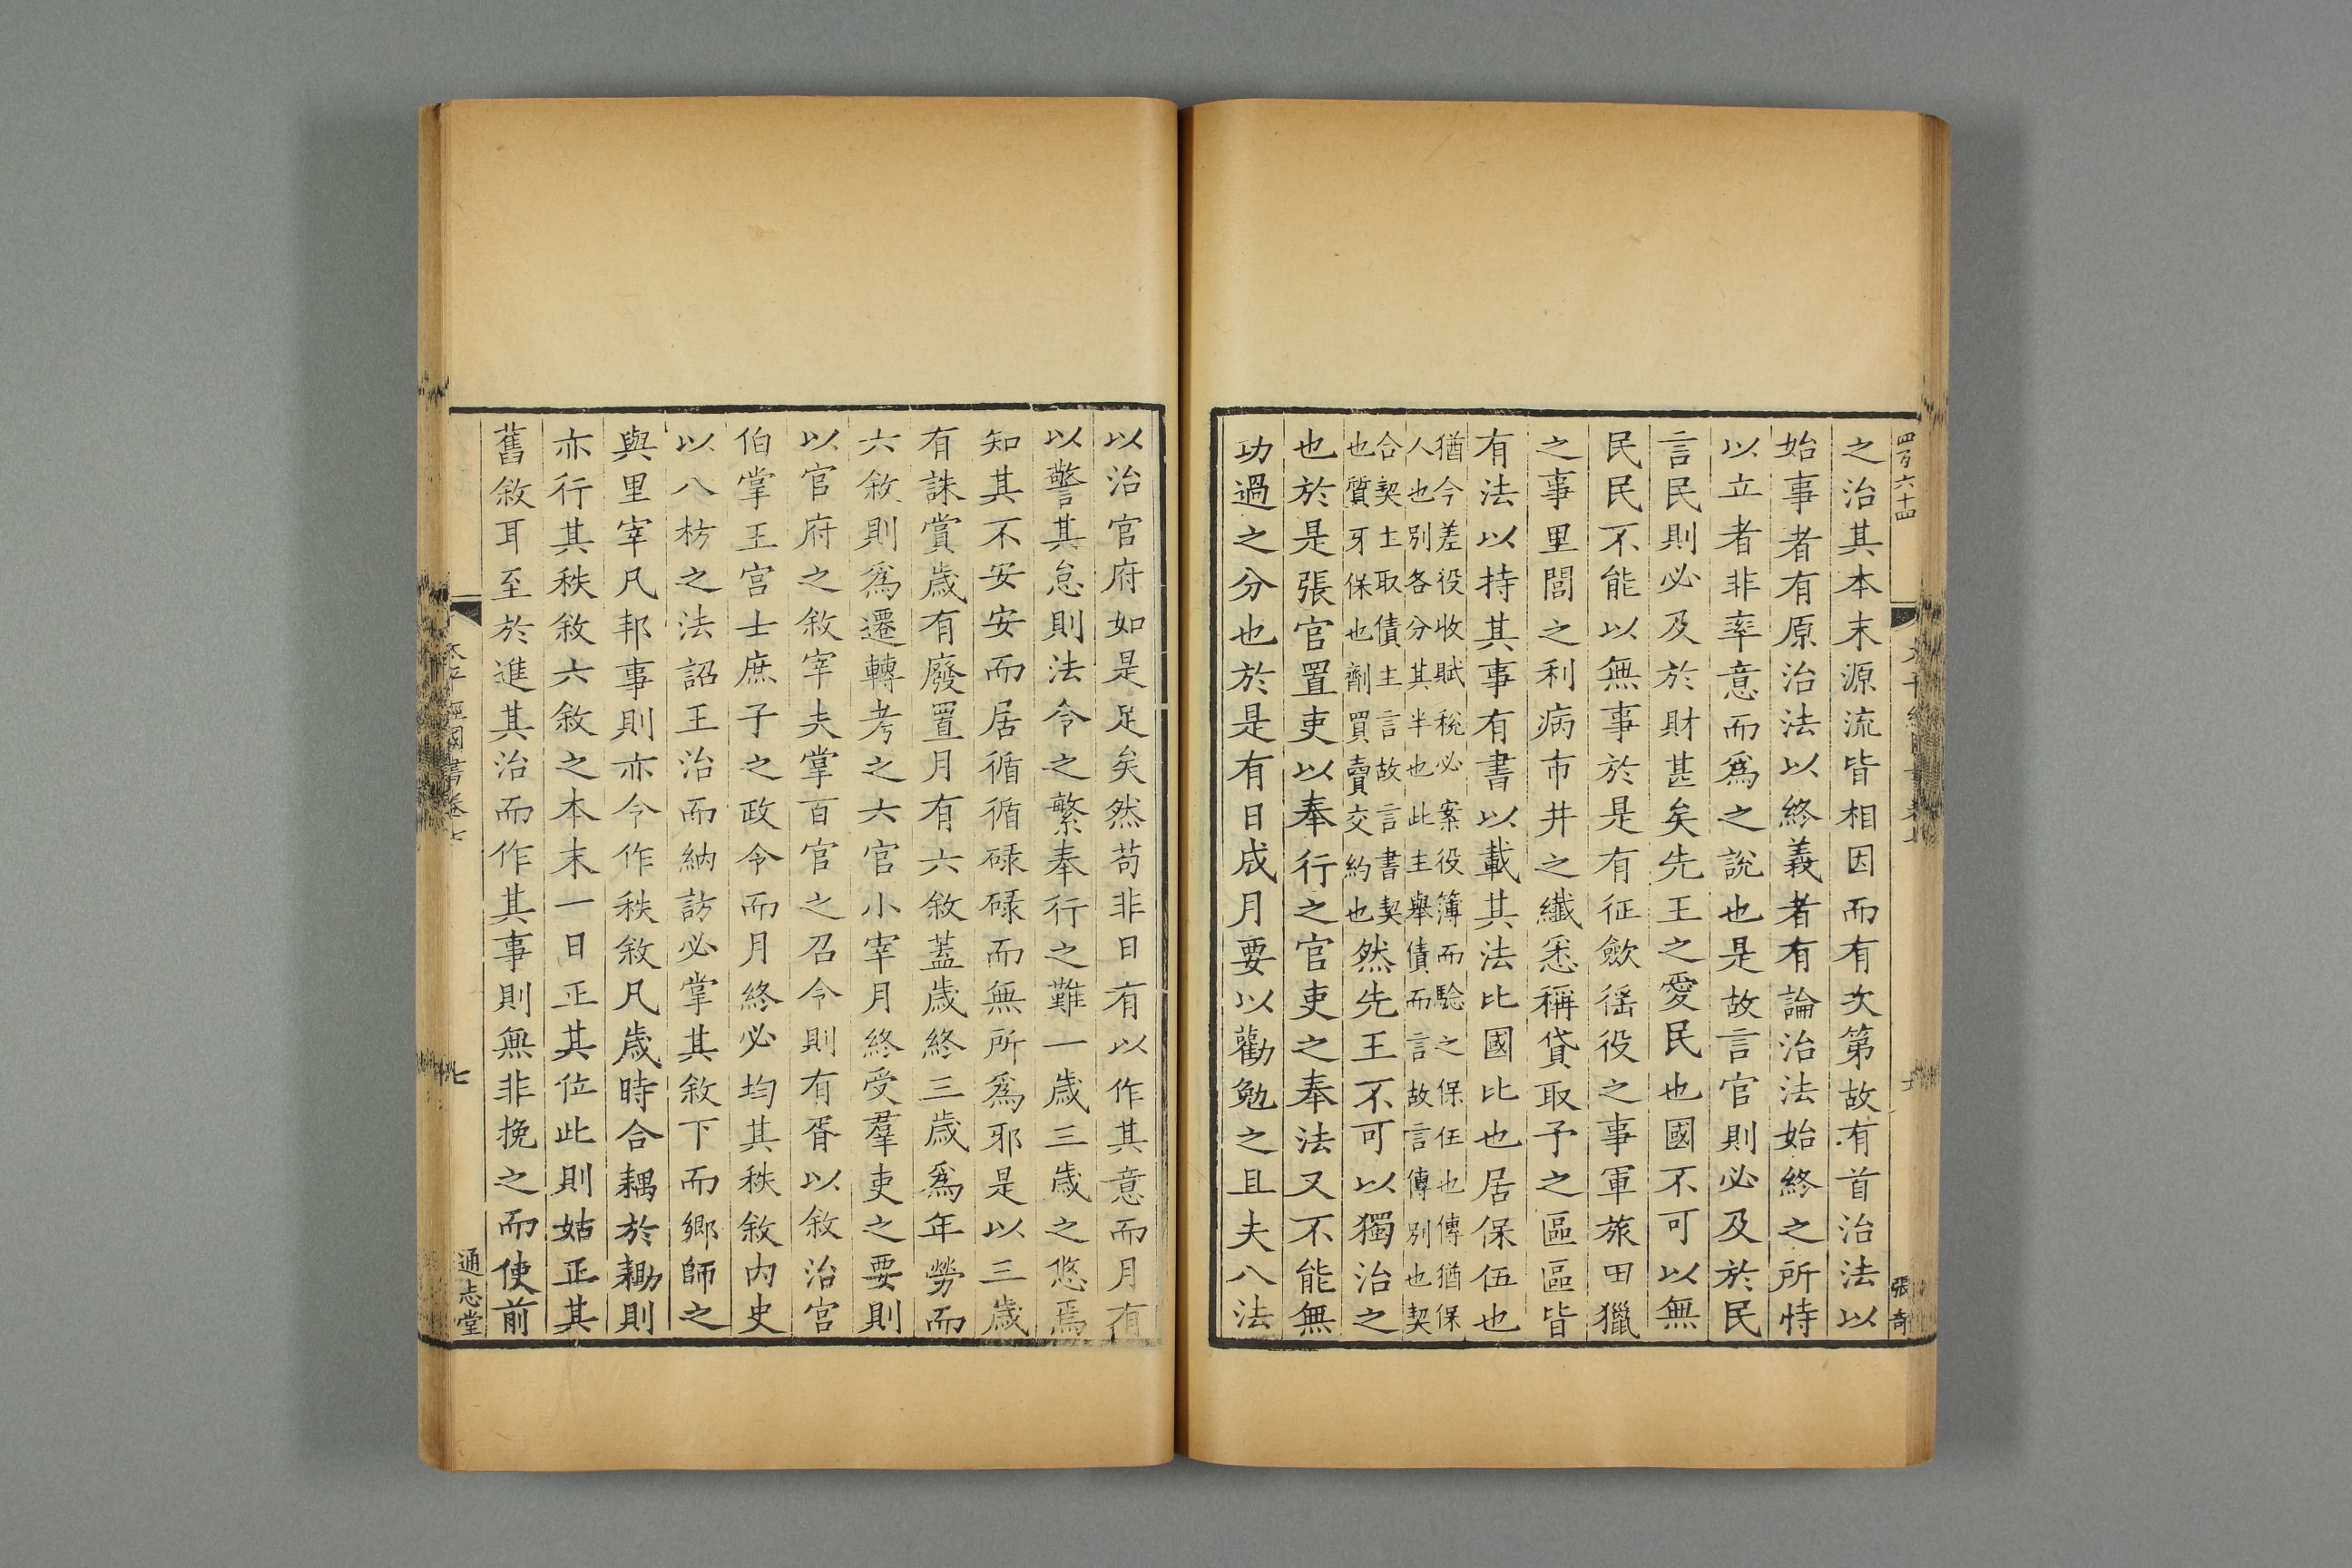 四百六十四
張奇
之治其本末源流皆相因而有次第故有首治法以
始事者有原治法以終義者有論治法始終之所恃
以立者非率意而爲之說也是故言官則必及於民
言民則必及於財甚矣先王之愛民也國不可以無
民民不能以無事於是有征歛徭役之事軍旅田獵
之事里閭之利病市井之纖悉稱貸取予之區區皆
有法以持其事有書以載其法比國比也居保伍也
猶今差役收賦稅必案役簿而驗之保任也傳猶保
人也別各分其半也此主舉債而言故言傳別也契
合契士取債主言故言書契
也質牙保也劑買賣交約也然先王不可以獨治之
也於是張官置吏以奉行之官吏之奉法又不能無
功過之分也於是有日成月要以勸勉之且夫八法
以治官府如是足矣然苟非日有以作其意而月有
以警其怠則法令之繁奉行之難一歲三歲之悠焉
知其不安安而居循循碌碌而無所爲邪是以三歲
有誅賞歲有廢置月有六敘蓋歲終三歲爲年勞而
六敘則爲遷轉考之六官小宰月終受羣吏之要則
以官府之敘宰夫掌百官之召令則有胥以敘治官
伯掌王宮士庶子之政令而月終必均其秩敘內史
以八枋之法詔王治而納訪必掌其敘下而鄉師之
與里宰凡邦事則亦令作秩敘凡歲時合耦於耡則
亦行其秩敘六敘之本末一曰正其位此則姑正其
舊敘耳至於進其治而作其事則無非挽之而使前
太平經國書卷七
七
通志堂